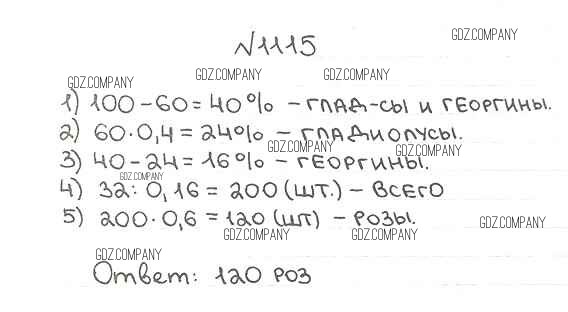 GDZ.COMPANY
№1115
GDZ.COMPANY GDZ.COMPANY GDZ.COMPANY
1) 100-60=40% - ГЛАД-СЫ И ГЕОРГИНЫ.
2) 60·0,4=24% - ГЛАДИОЛУСЫ.
GDZ.COMPANY GDZ.COMPANY
3) 40-24=16% - ГЕОРГИНЫ.
GDZ.COMPANY
4) 32:0,16=200(ШТ.) - ВСЕГО
5) 200·0,6=120(ШТ) - РОЗЫ.
GDZ.COMPANY GDZ.COMPANY GDZ.COMPANY
GDZ.COMPANY
Ответ: 120 РОЗ